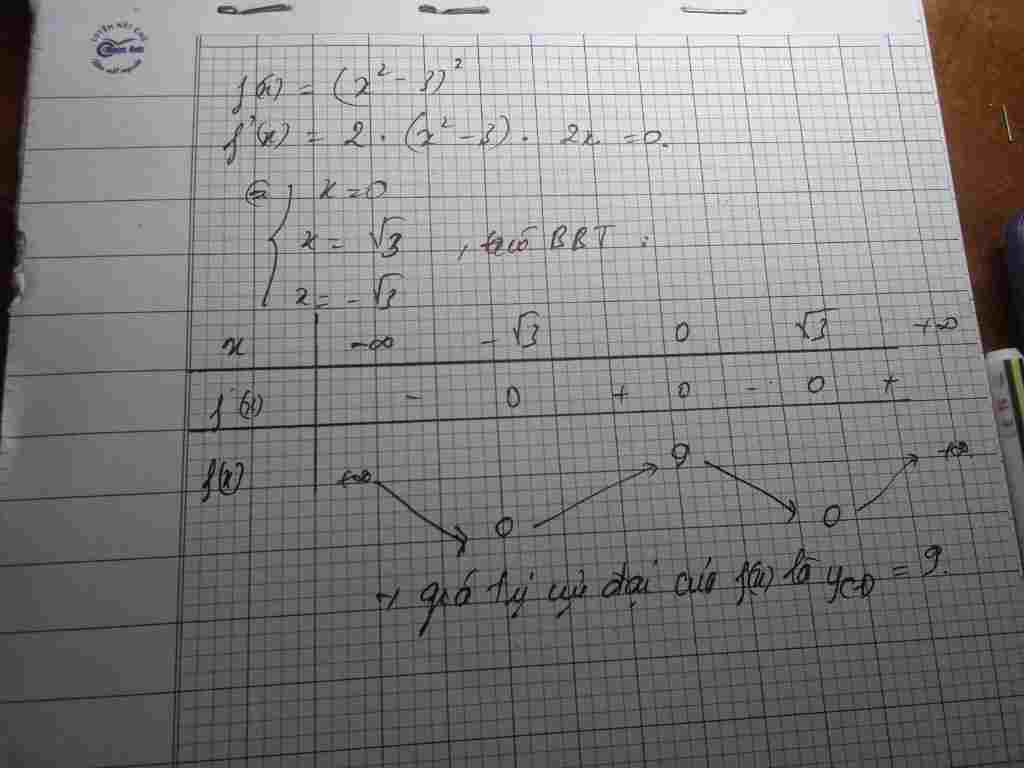 f(x) = (x² - 3)²
f'(x) = 2 · (x² - 3) · 2x = 0.
x = 0
x = √3 , ta có BBT :
x = - √3
x -∞ - √3 0 √3 +∞
f'(x) - 0 + 0 - 0 +
f(x) +∞ 0 9 0 +∞
→ giá trị cực đại của f(x) là yCĐ = 9.